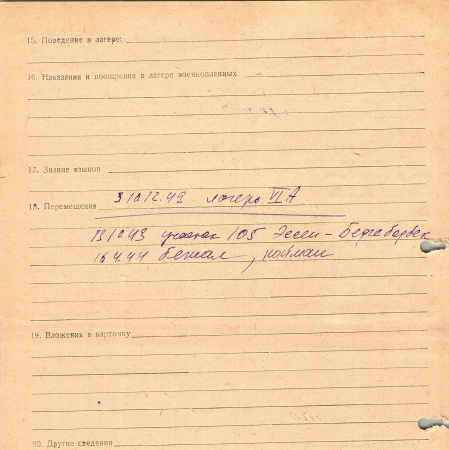 15. Поведение в лагере:
16. Наказания и поощрения в лагере военнопленных
17. Знание языков
3 10.12.43 лагерь VI A
18. Перемещения
43 участок 105 Эссен-
16 4.44 бежал, пойман
19. Вложения в карточку
20. Другие сведения